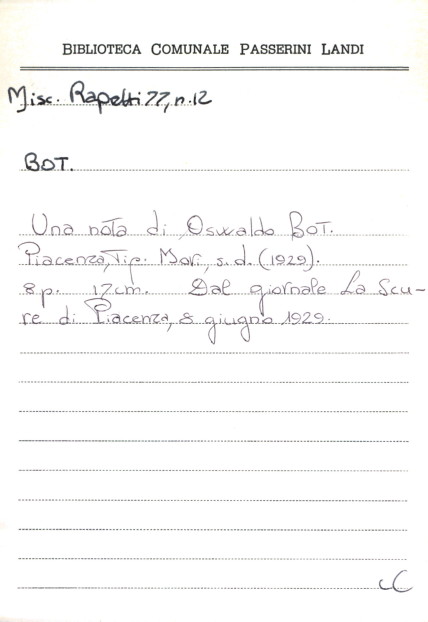 BIBLIOTECA COMUNALE PASSERINI LANDI
Misc. Rapetti 77, n. 12
BOT.
Una nota di Oswaldo Bot.
Piacenza, Tip. Mori, s. d. (1929).
8 p. 17 cm. Dal giornale La Scu-
re di Piacenza, 8 giugno 1929.